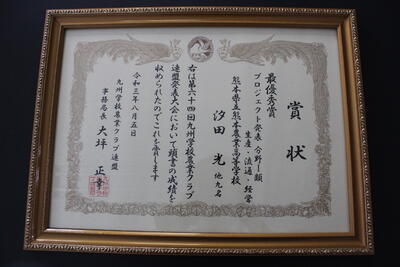 賞状
最優秀賞
プロジェクト発表 分野Ⅰ類
生産・流通・経営
熊本県立熊本農業高等学校
汐田 光 他九名
右は第六十四回九州学校農業クラブ
連盟発表大会において頭書の成績を
収められたのでこれを賞します
令和三年八月五日
九州学校農業クラブ連盟
事務局長 大坪 正幸